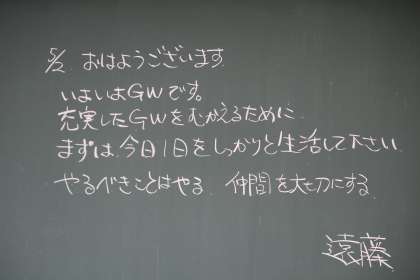 5/2. おはようございます
いよいよGWです。
充実したGWをむかえるために
まずは今日1日をしっかりと生活して下さい
やるべきことはやる。仲間を大切にする。
遠藤